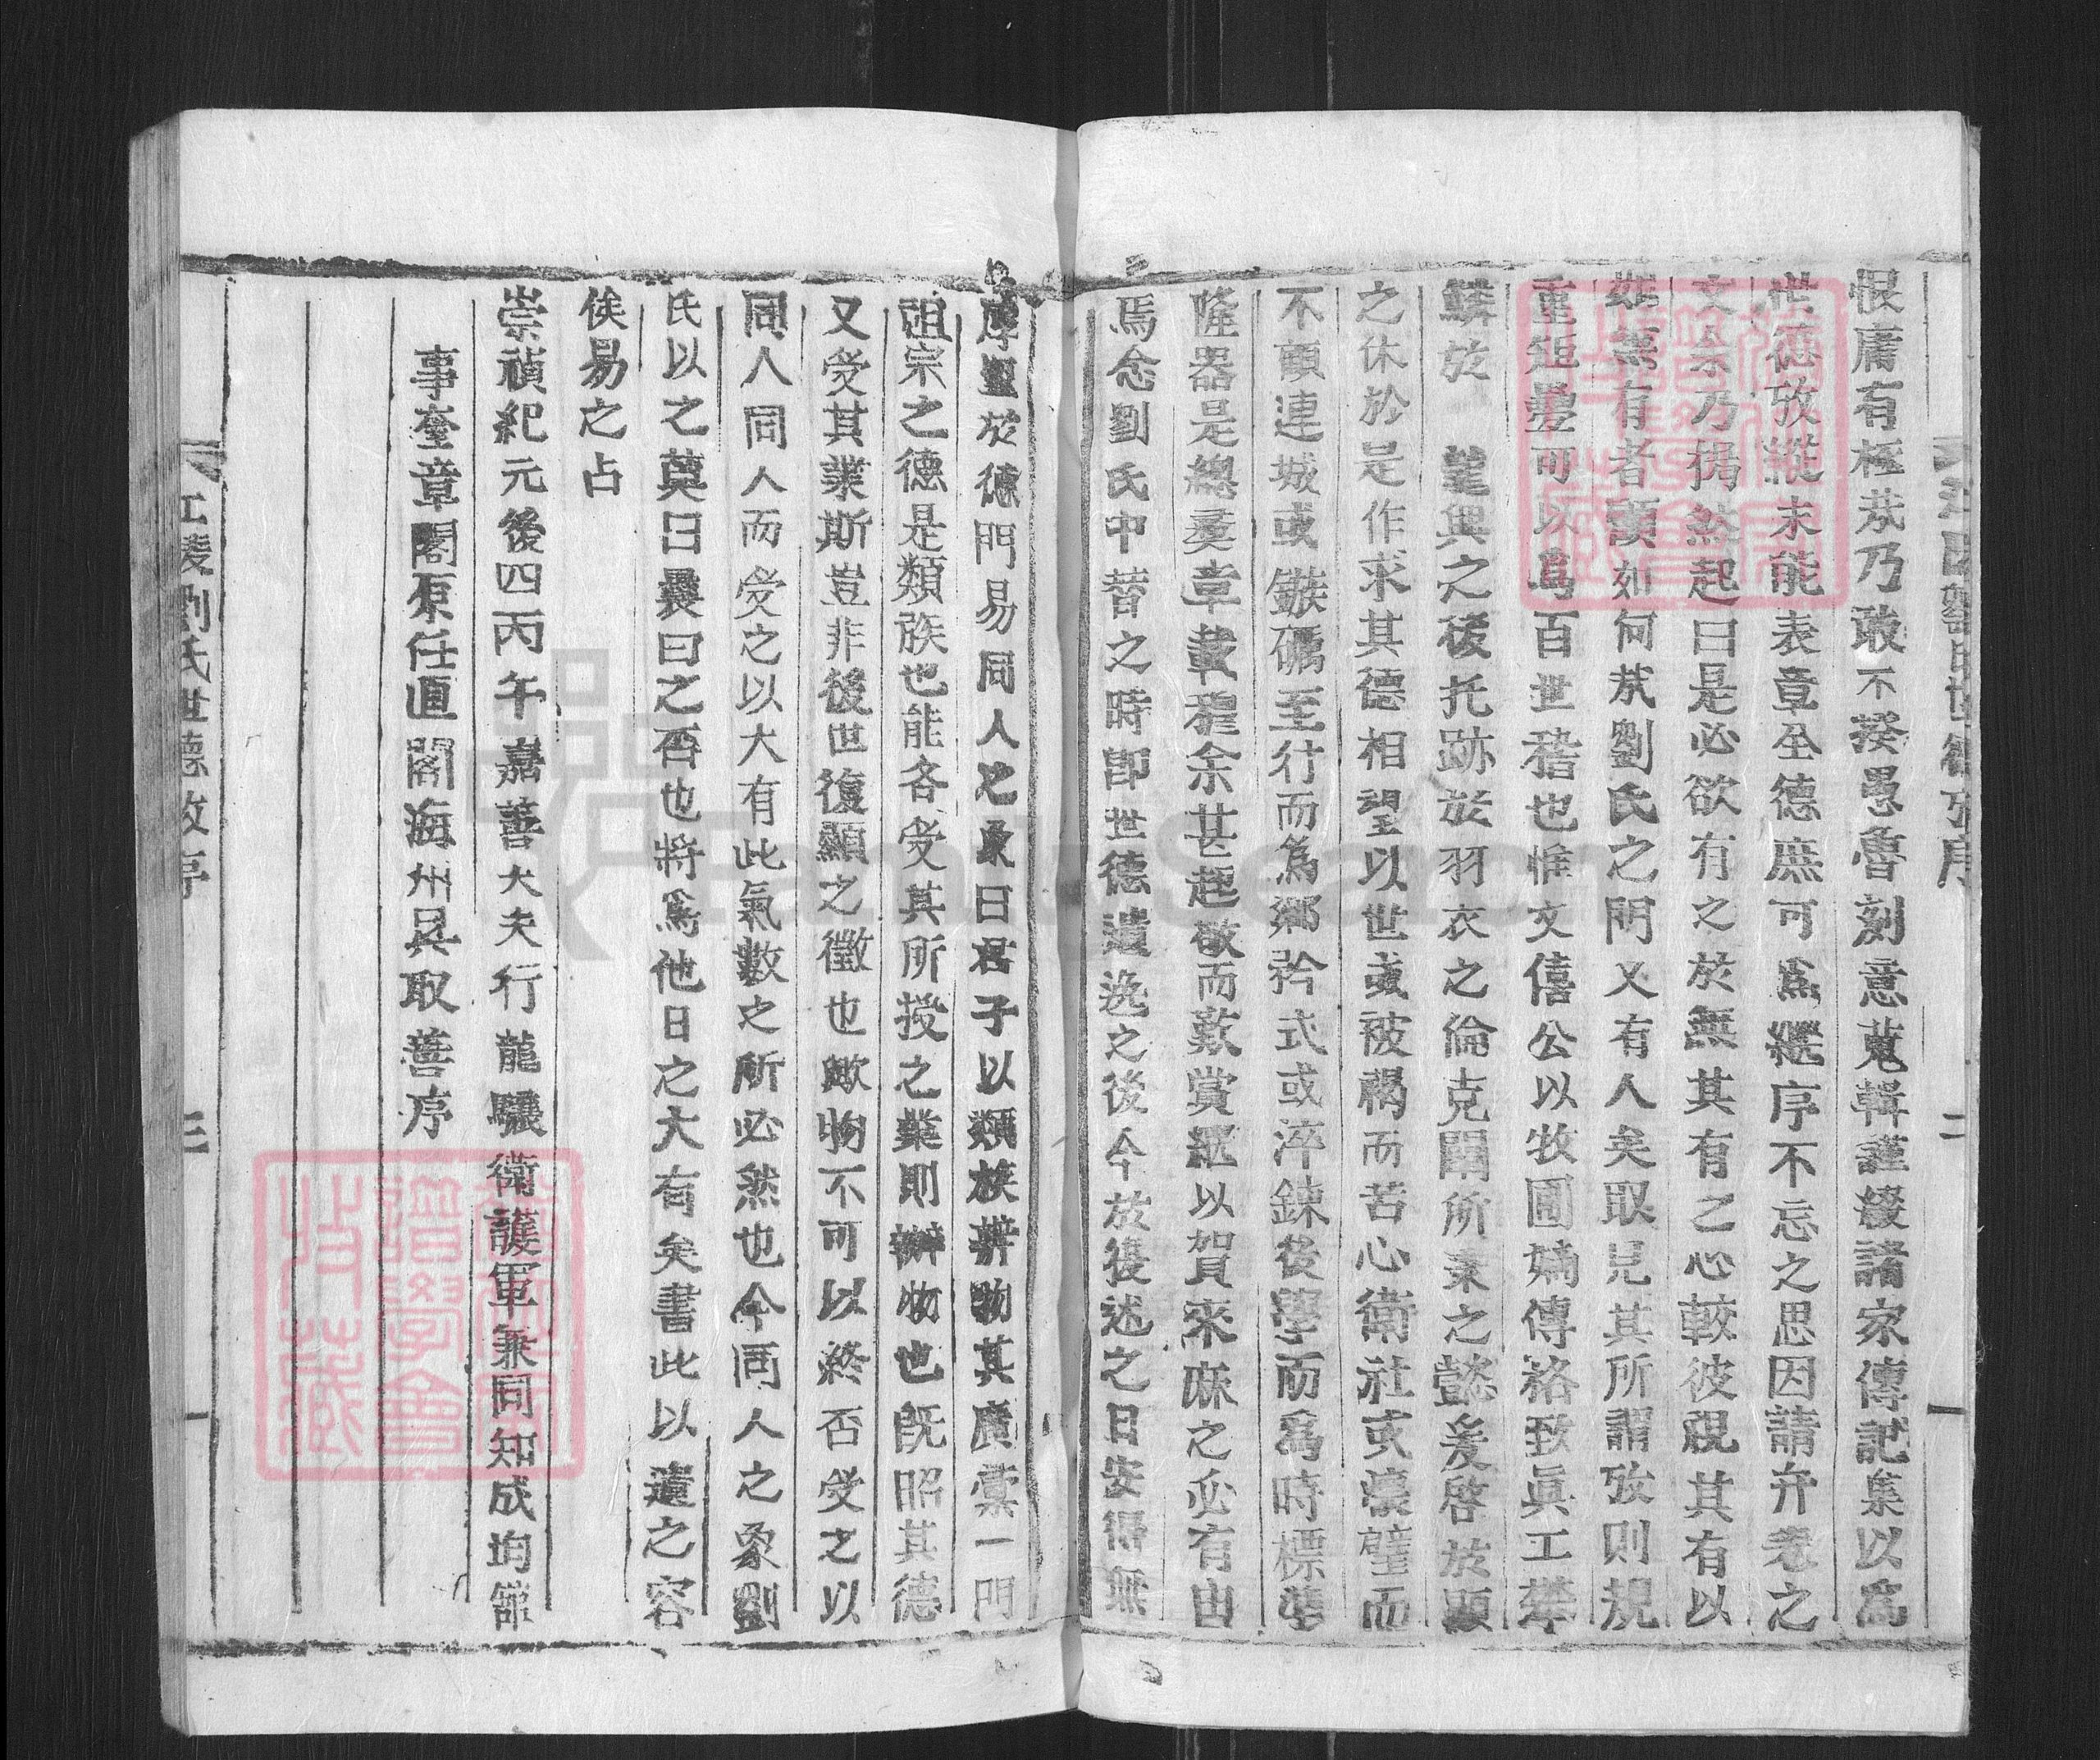 恨庸有極哉乃敢不揆愚魯刻意蒐輯謹綴諸家傳記集以爲
世德攷縱未能表章全德庶可爲繼序不忘之思因請弁卷之
文余乃惕然起曰是必欲有之於無其有之心較彼視其有以
雖無有者顧如何哉劉氏之門又有人矣取見其所謂攷則規
重矩疊可以爲百世稽也惟文僖公以牧圃嫡傳裕致眞工攀
鱗於 龍興之後托跡於羽衣之倫克闡所秉之懿爰啓於顯
之休於是作求其德相望以世或被褐而苦心衛社或褰譬而
不顧連城或鏃礪至行而爲鄉矜式或淬鍊後學而爲時標準
隆器是總彛章載穆余甚起敬而歎賞繼以賀來庥之必有由
焉念劉氏中替之時卽世德遺逸之後今於復述之日安得無
厚望於德門易同人之象曰君子以類族辨物其廣棠一門
祖宗之德是類族也能各受其所授之業則辨物也旣昭其德
又受其業斯豈非後世復顯之徵也歟物不可以終否受之以
同人同人而受之以大有此氣數之所必然也今同人之象劉
氏以之奠日曩日之否也將爲他日之大有矣書此以遺之容
俟易之占
崇禎紀元後四丙午嘉善大夫行龍驤衛護軍兼同知成均館
事奎章閣原任直閣海州吳取善序
江陵劉氏世德攷序
二
江陵劉氏世德攷序
三